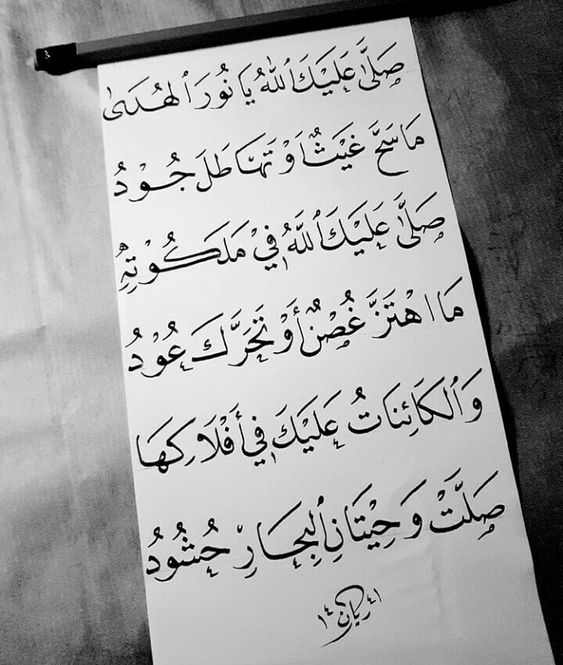 صَلَّىٰ عَلَيْكَ ٱللهُ يَا نُورَ ٱلهُدَىٰ
مَا سَحَّ غَيْثٌ أَوْ تَهَاطَلَ جُوْدُ
صَلَّىٰ عَلَيْكَ ٱللَّهُ فِيْ مَلَكُوْتِهِ
مَا ا هْتَزَّ غُصْنٌ أَوْ تَحَرَّكَ عُوْدُ
وَٱلكَائِنَاتُ عَلَيْكَ فِيْ أَفْلَاكِهَا
صَلَّتْ وَحِيْتَانِ ٱلبِحَارِ حُشُوْدُ
ريان ١٤٤١